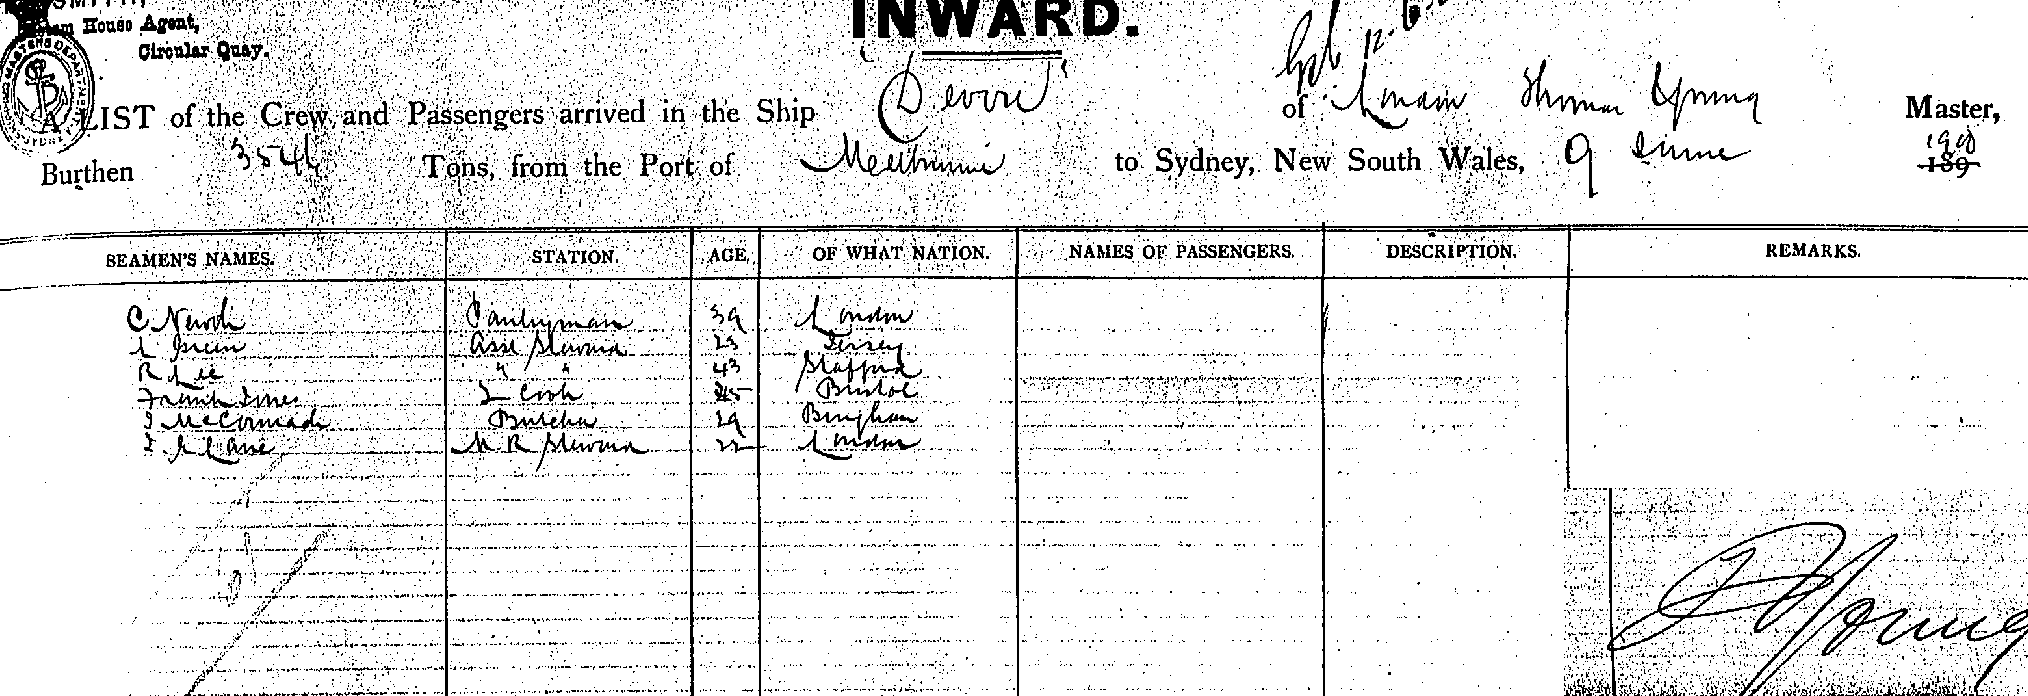 SMITH,
Custom House Agent,
Circular Quay.
INWARD.
A LIST of the Crew and Passengers arrived in the Ship "Devon" of London Thomas Young Master,
Burthen Tons, from the Port of Melbourne to Sydney, New South Wales, 9 June 190
189
SEAMEN'S NAMES. STATION. AGE. OF WHAT NATION. NAMES OF PASSENGERS. DESCRIPTION. REMARKS.
C Pantryman 39 London
Green Asst Steward 23 Jersey
R Lee " " 43 Stafford
Frank Jones 2 Cook Bristol
McCormack Butcher 29
Lane M R Steward 22 London
Young